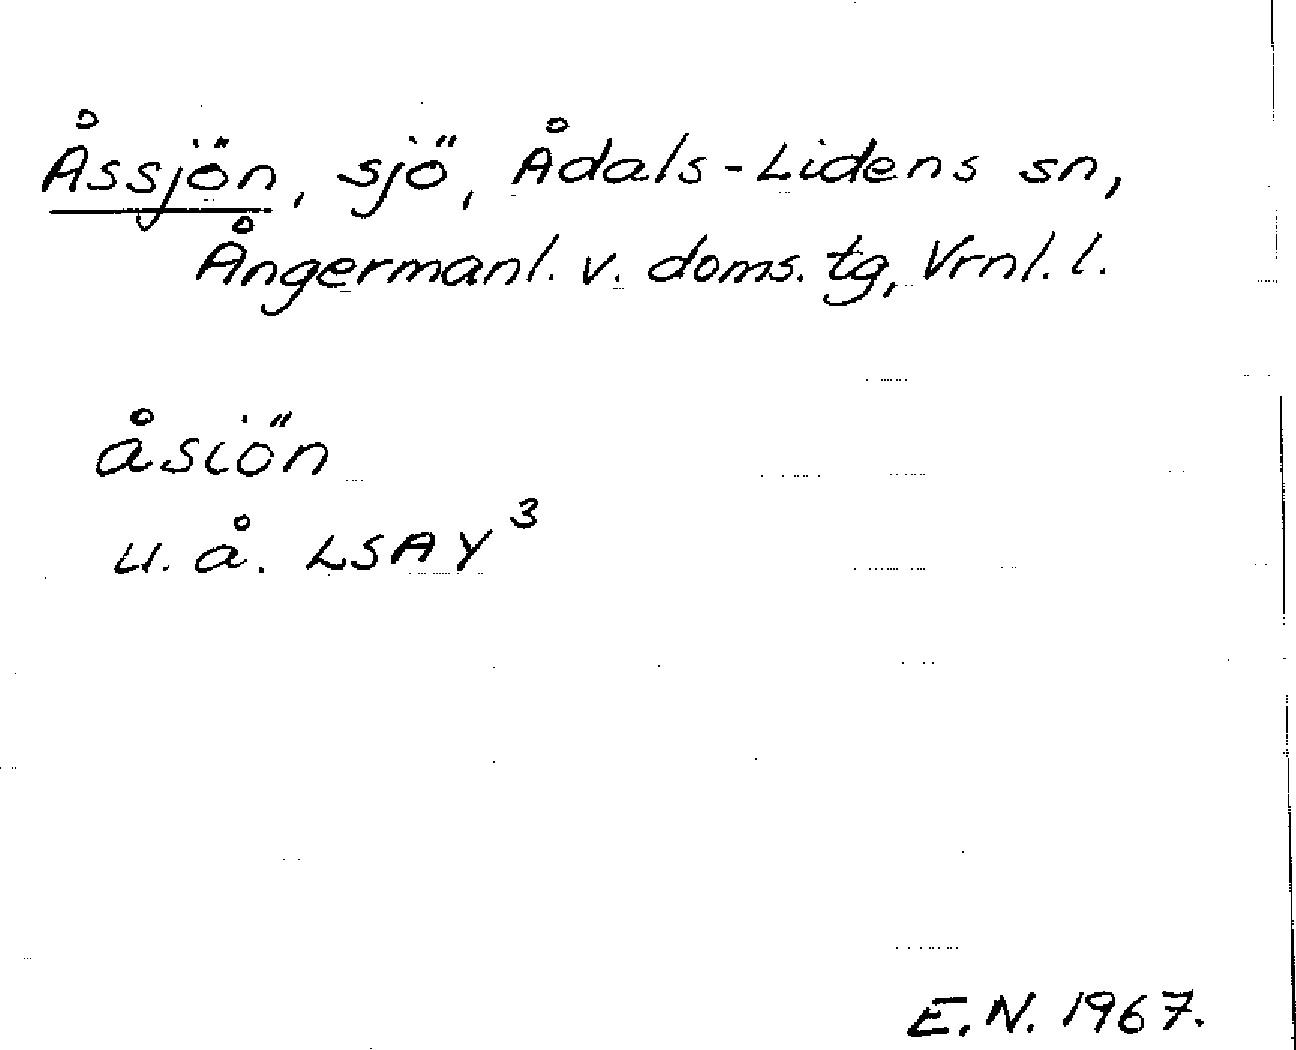 Åssjön, sjö, Ådals-Lidens sn,
Ångermanl. v. doms. tg, Vrnl. l.
åsiön
u.å. LSA Y³
E.N. 1967.